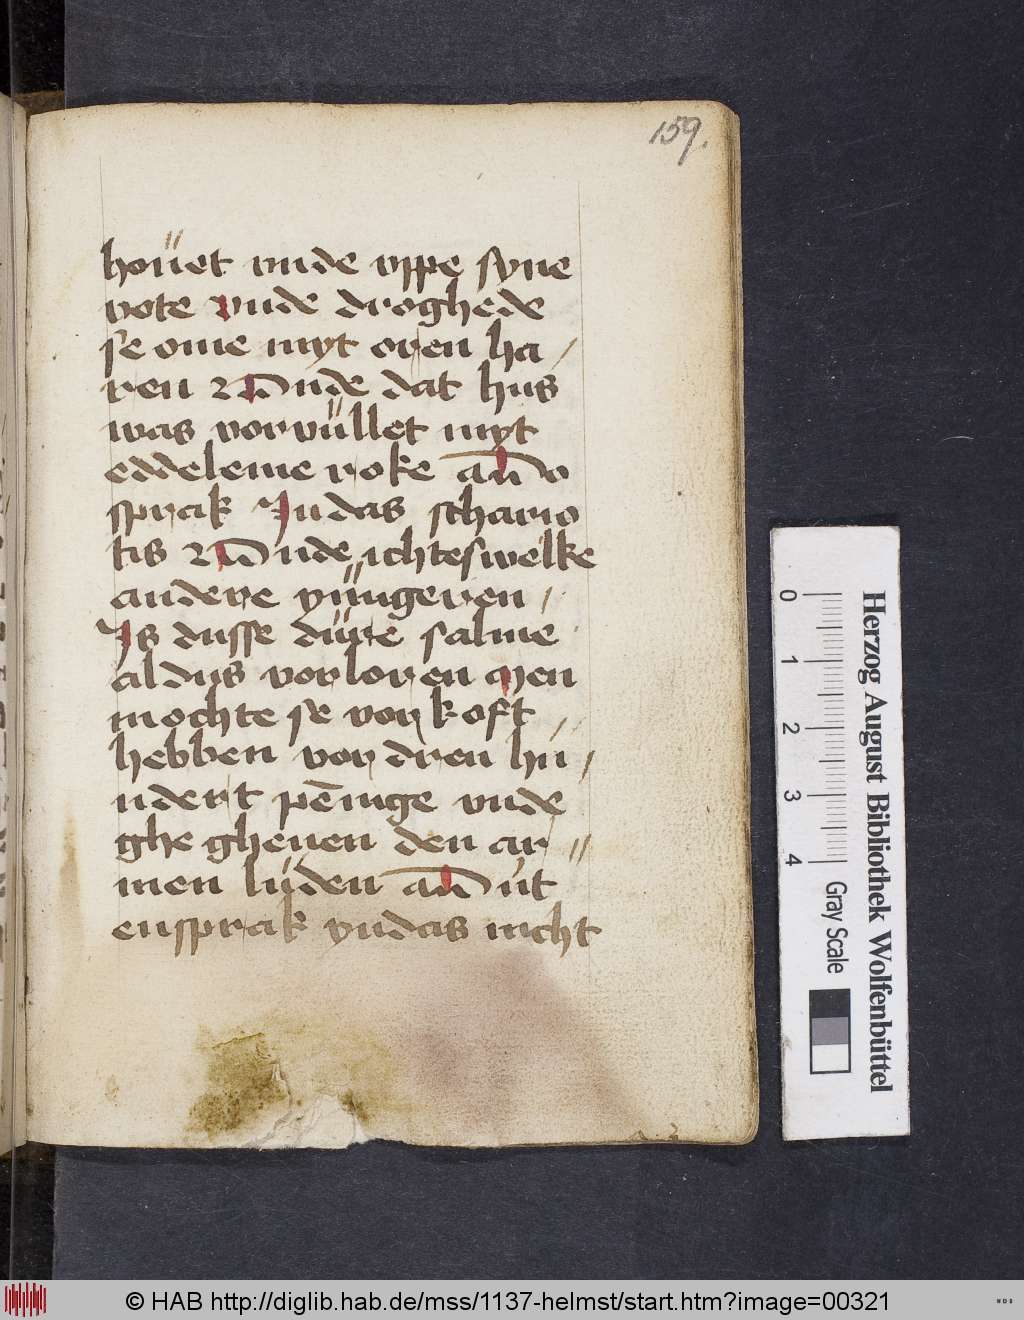 159.
hoüet vnde vppe syne
vote vnde droghede
se ome myt oren ha /
ren vnde dat hus
was vorvüllet myt
eddeleme roke do
sprak Judas schario
tis vnde ichteswelke
andere yüngeren /
Js dusse düre salme
aldus vorloren Men
mochte se vorkoft
hebben vor dren hu /
ndert pēnige vnde
ghe gheuen den ar //
men lüden ut
ensprak yudas nicht
Herzog August Bibliothek Wolfenbüttel
0 1 2 3 4 Gray Scale
© HAB http://diglib.hab.de/mss/1137-helmst/start.htm?image=00321